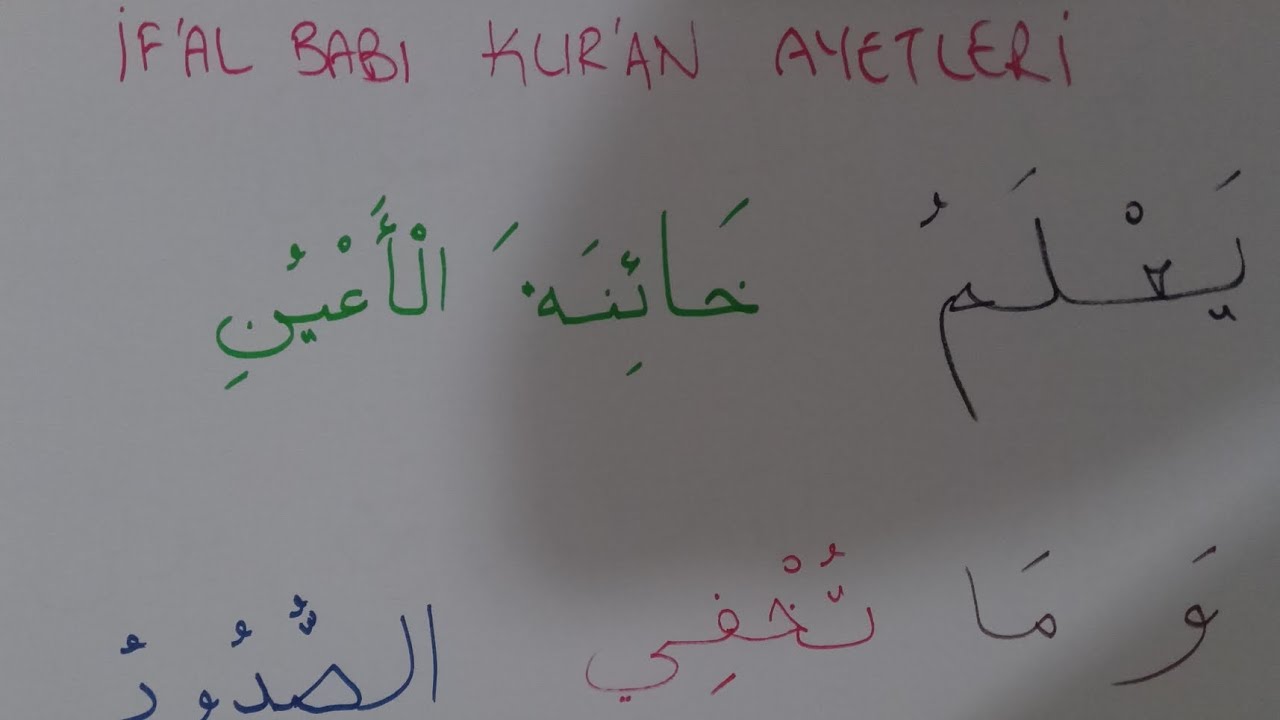 İF'AL BABI KUR'AN AYETLERİ
يَعْلَمُ خَائِنَةَ الْأَعْيُنِ
وَ مَا تُخْفِي الصُّدُورُ